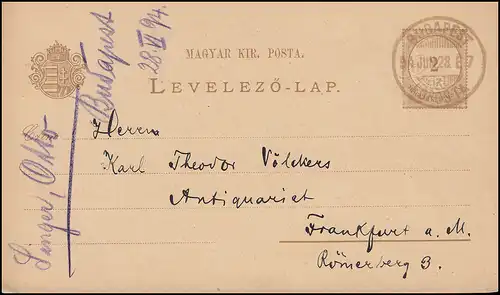 MAGYAR KIR. POSTA.
LEVELEZŐ-LAP.
BUDAPEST
94 JUN. 28
2
Singer, Otto
Budapest
28.VI 94.
Herrn
Karl Theodor Völckers
Antiquariat
Frankfurt a. M.
Römerberg 3.